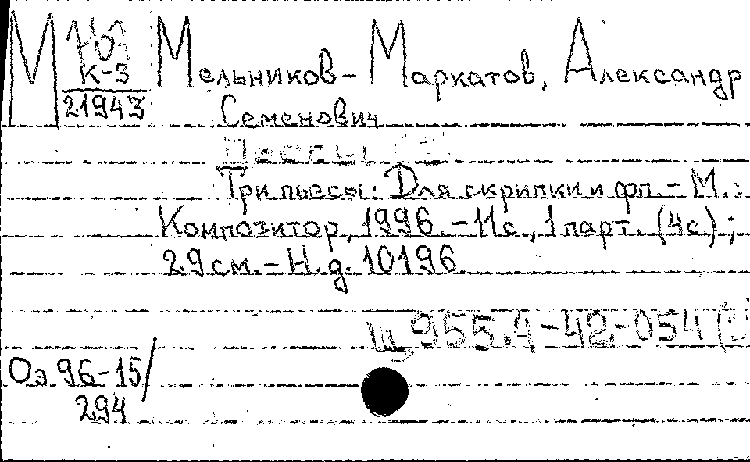 М Ю Мельников-Маркатов, Александр
К-3
21943
Семенович
Пьессы
Три пьесы: Для скрипки и фп. - М.:
Композитор, 1996. - 11с., 1 парт. (4с);
29 см. - Н.д. 10196.
Щ 955.4-42-054
Оэ 96-15/
294